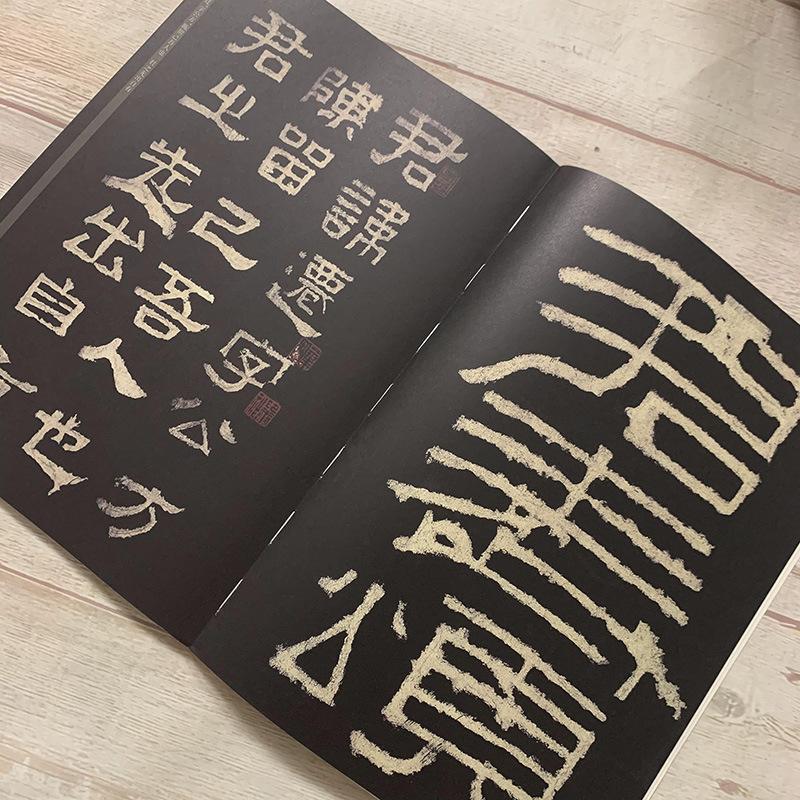 君表頌
君諱遷字公方
陳留己吾人也
君之先出自